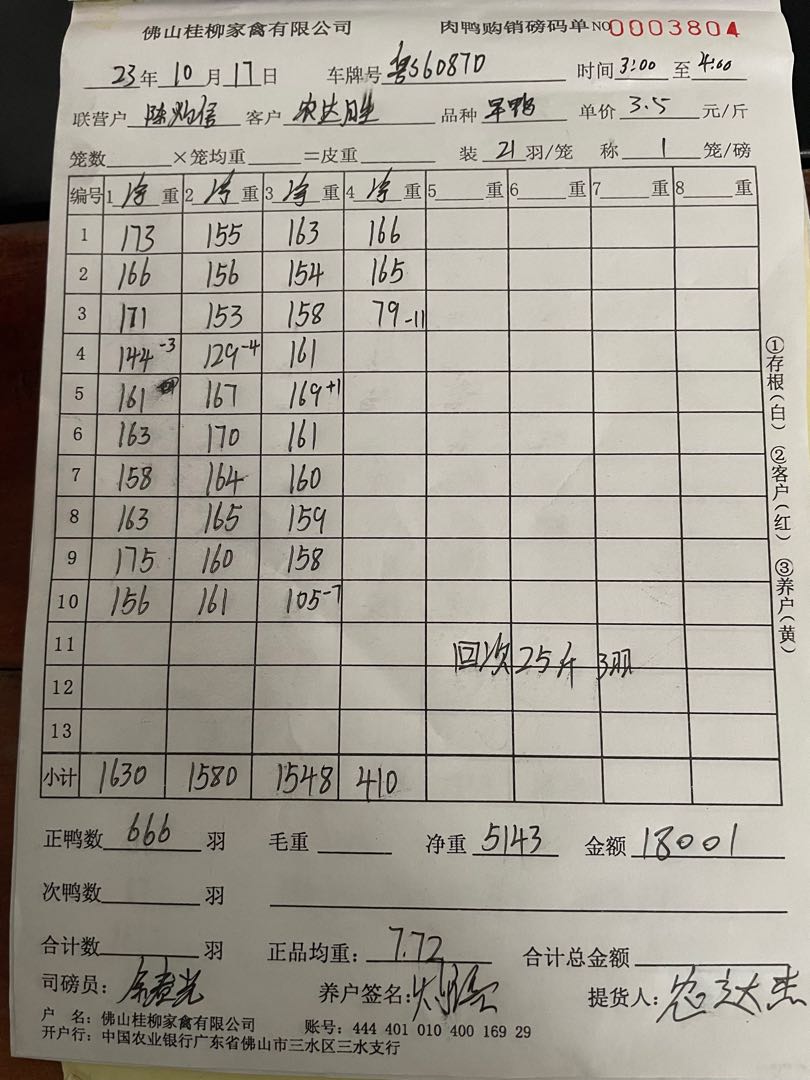 佛山桂柳家禽有限公司 肉鸭购销磅码单 NO 0003804
23年10月17日 车牌号 粤S60870 时间 3:00 至 4:00
联营户 陈灿信 客户 农达胜 品种 旱鸭 单价 3.5 元/斤
笼数 ×笼均重 =皮重 装 21 羽/笼 称 1 笼/磅
编号 1 净 重 2 净 重 3 净 重 4 净 重 5 重 6 重 7 重 8 重
1 173 155 163 166
2 166 156 154 165
3 171 153 158 79 -11
4 144 -3 129 -4 161
5 161 167 169 +1
6 163 170 161
7 158 164 160
8 163 165 159
9 175 160 158
10 156 161 105 -7
11
回次 25斤 3羽
12
13
小计 1630 1580 1548 410
正鸭数 666 羽 毛重 净重 5143 金额 18001
次鸭数 羽
合计数 羽 正品均重: 7.72 合计总金额
司磅员: 养户签名: 提货人: 农达杰
户 名: 佛山桂柳家禽有限公司 账号: 444 401 010 400 169 29
开户行: 中国农业银行广东省佛山市三水区三水支行
①存根(白) ②客户(红) ③养户(黄)